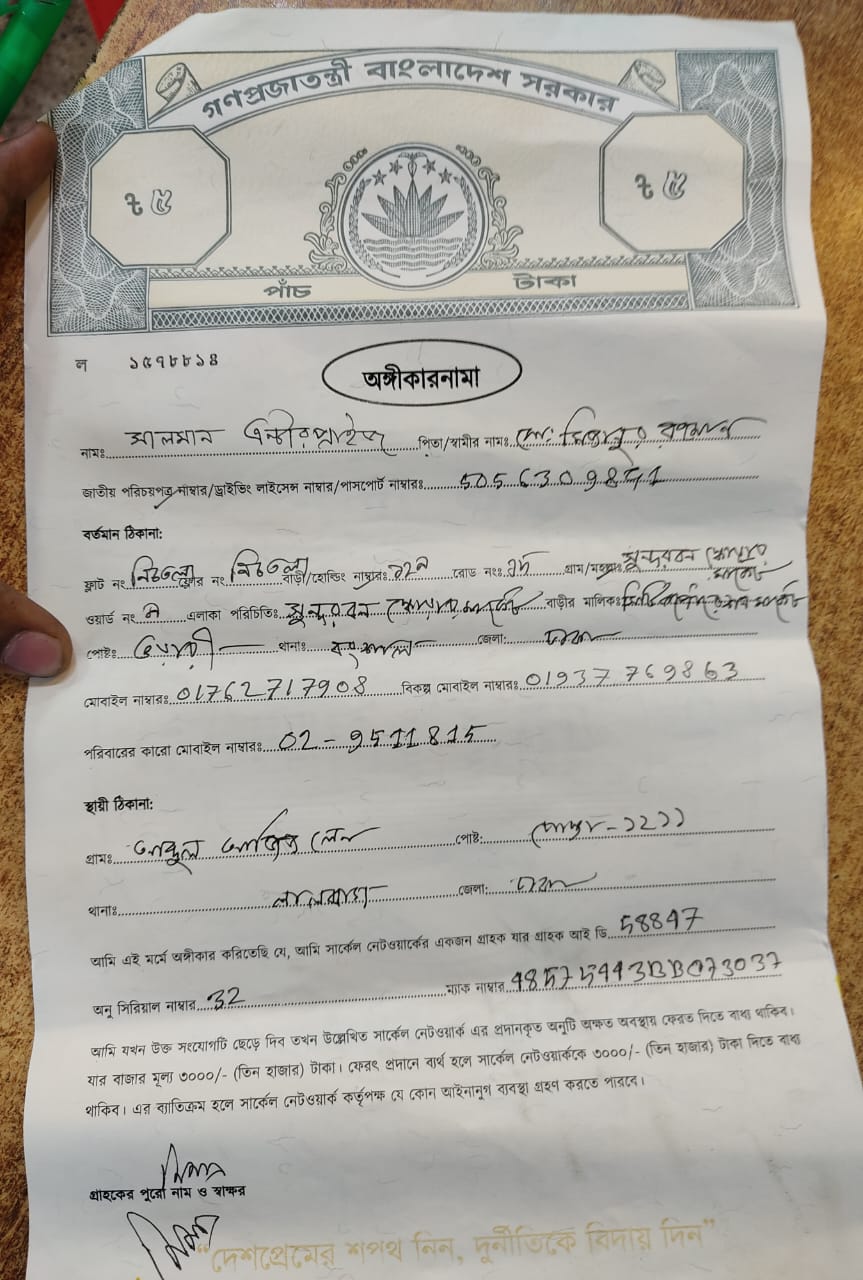 গণপ্রজাতন্ত্রী বাংলাদেশ সরকার
৳ ৫ ৳ ৫
পাঁচ টাকা
ল ১৫৭৮৮১৪
অঙ্গীকারনামা
নামঃ সালমান এন্টারপ্রাইজ পিতা/স্বামীর নামঃ মোঃ মিজানুর রহমান
জাতীয় পরিচয়পত্র নাম্বার/ড্রাইভিং লাইসেন্স নাম্বার/পাসপোর্ট নাম্বারঃ 5056309871
বর্তমান ঠিকানা:
ফ্লাট নং নিচতলা ফ্লোর নং নিচতলা বাড়ী/হোল্ডিং নাম্বারঃ রোড নংঃ গ্রাম/মহল্লাঃ সুন্দরবন স্কোয়ার মার্কেট
ওয়ার্ড নং এলাকা পরিচিতিঃ সুন্দরবন স্কোয়ার মার্কেট বাড়ীর মালিকঃ
পোষ্টঃ থানাঃ জেলা: ঢাকা
মোবাইল নাম্বারঃ 01762717908 বিকল্প মোবাইল নাম্বারঃ 01937769863
পরিবারের কারো মোবাইল নাম্বারঃ 02-9511815
স্থায়ী ঠিকানা:
গ্রামঃ লেন পোষ্ট: ১2১১
থানাঃ লালবাগ জেলা: ঢাকা
আমি এই মর্মে অঙ্গীকার করিতেছি যে, আমি সার্কেল নেটওয়ার্কের একজন গ্রাহক যার গ্রাহক আই ডি 58847
অনু সিরিয়াল নাম্বার 32 ম্যাক নাম্বার 485754413BB073037
আমি যখন উক্ত সংযোগটি ছেড়ে দিব তখন উল্লেখিত সার্কেল নেটওয়ার্ক এর প্রদানকৃত অনুটি অক্ষত অবস্থায় ফেরত দিতে বাধ্য থাকিব।
যার বাজার মূল্য ৩০০০/- (তিন হাজার) টাকা। ফেরৎ প্রদানে ব্যর্থ হলে সার্কেল নেটওয়ার্ককে ৩০০০/- (তিন হাজার) টাকা দিতে বাধ্য
থাকিব। এর ব্যতিক্রম হলে সার্কেল নেটওয়ার্ক কর্তৃপক্ষ যে কোন আইনানুগ ব্যবস্থা গ্রহণ করতে পারবে।
গ্রাহকের পুরো নাম ও স্বাক্ষর
“দেশপ্রেমের শপথ নিন, দুর্নীতিকে বিদায় দিন”